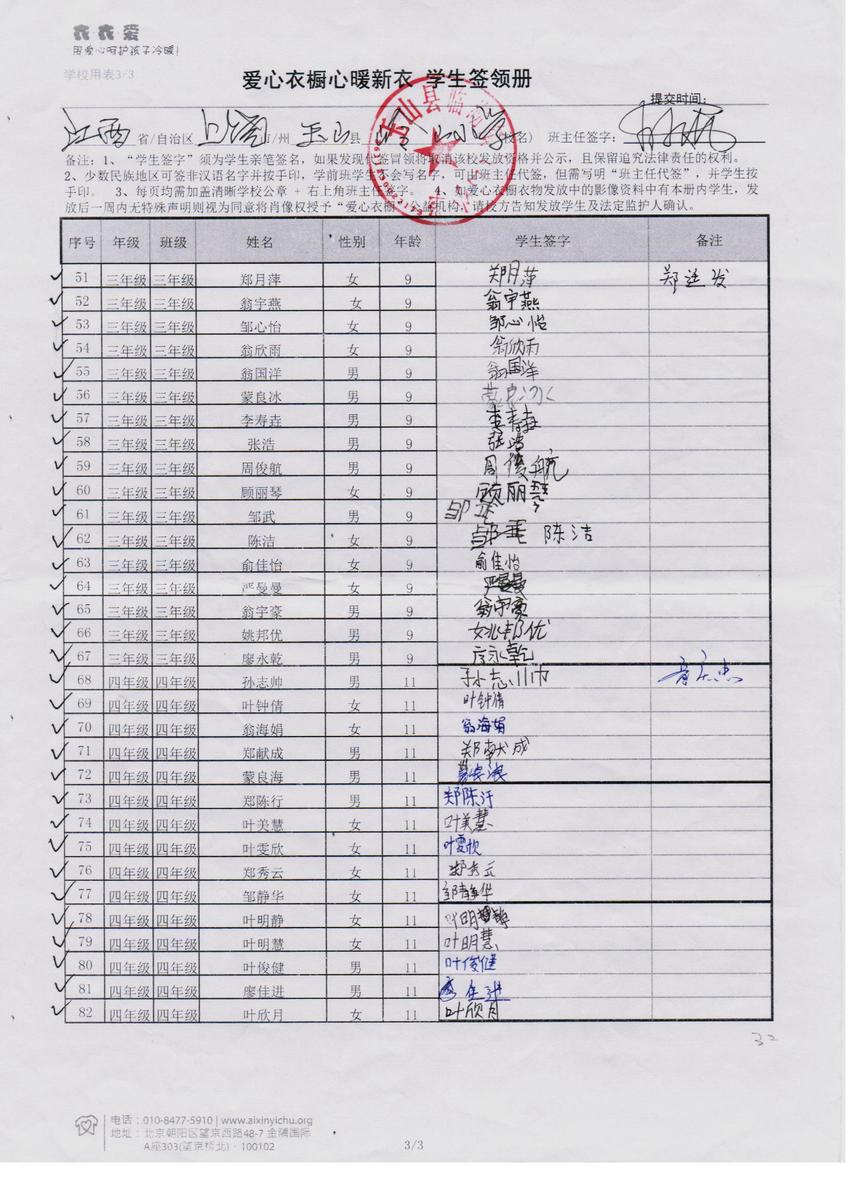 衣·衣·爱
用爱心呵护孩子冷暖!
学校用表3/3
爱心衣橱心暖新衣 学生签领册
提交时间:
江西 省/自治区 上饶 市/州 玉山 县 小学 班主任签字:
备注:1、“学生签字”须为学生亲笔签名,如果发现代签冒领将取消该校发放资格并公示,且保留追究法律责任的权利。
2、少数民族地区可签非汉语名字并按手印,学前班学生不会写名字,可由班主任代签,但需写明“班主任代签”,并学生按
手印。 3、每页均需加盖清晰学校公章 + 右上角班主任签字。 4、如爱心衣橱衣物发放中的影像资料中有本册内学生,发
放后一周内无特殊声明则视为同意将肖像权授予“爱心衣橱”公益机构,请校方告知发放学生及法定监护人确认。
玉山县
序号 年级 班级 姓名 性别 年龄 学生签字 备注
51 三年级 三年级 郑月萍 女 9 郑月萍 郑进发
52 三年级 三年级 翁宇燕 女 9 翁宇燕
53 三年级 三年级 邹心怡 女 9 邹心怡
54 三年级 三年级 翁欣雨 女 9 翁欣雨
55 三年级 三年级 翁国洋 男 9 翁国洋
56 三年级 三年级 蒙良冰 男 9 蒙良冰
57 三年级 三年级 李寿垚 男 9
58 三年级 三年级 张浩 男 9 张浩
59 三年级 三年级 周俊航 男 9 周俊航
60 三年级 三年级 顾丽琴 女 9 顾丽琴
61 三年级 三年级 邹武 男 9 邹武
62 三年级 三年级 陈洁 女 9 陈洁
63 三年级 三年级 俞佳怡 女 9 俞佳怡
64 三年级 三年级 严曼曼 女 9 严曼曼
65 三年级 三年级 翁宇豪 男 9 翁宇豪
66 三年级 三年级 姚邦优 男 9 姚邦优
67 三年级 三年级 廖永乾 男 9 永乾
68 四年级 四年级 孙志帅 男 11 孙志帅
69 四年级 四年级 叶钟倩 女 11 叶钟倩
70 四年级 四年级 翁海娟 女 11 翁海娟
71 四年级 四年级 郑献成 男 11 郑献成
72 四年级 四年级 蒙良海 男 11 蒙良海
73 四年级 四年级 郑陈行 男 11 郑陈行
74 四年级 四年级 叶美慧 女 11 叶美慧
75 四年级 四年级 叶雯欣 女 11 叶雯欣
76 四年级 四年级 郑秀云 女 11 郑秀云
77 四年级 四年级 邹静华 女 11 邹静华
78 四年级 四年级 叶明静 女 11 叶明静
79 四年级 四年级 叶明慧 女 11 叶明慧
80 四年级 四年级 叶俊健 男 11 叶俊健
81 四年级 四年级 廖佳进 男 11 佳进
82 四年级 四年级 叶欣月 女 11 叶欣月
32
电话:010-8477-5910 | www.aixinyichu.org
地址:北京朝阳区望京西路48-7 金隅国际
A座303(望京桥北)·100102
3/3